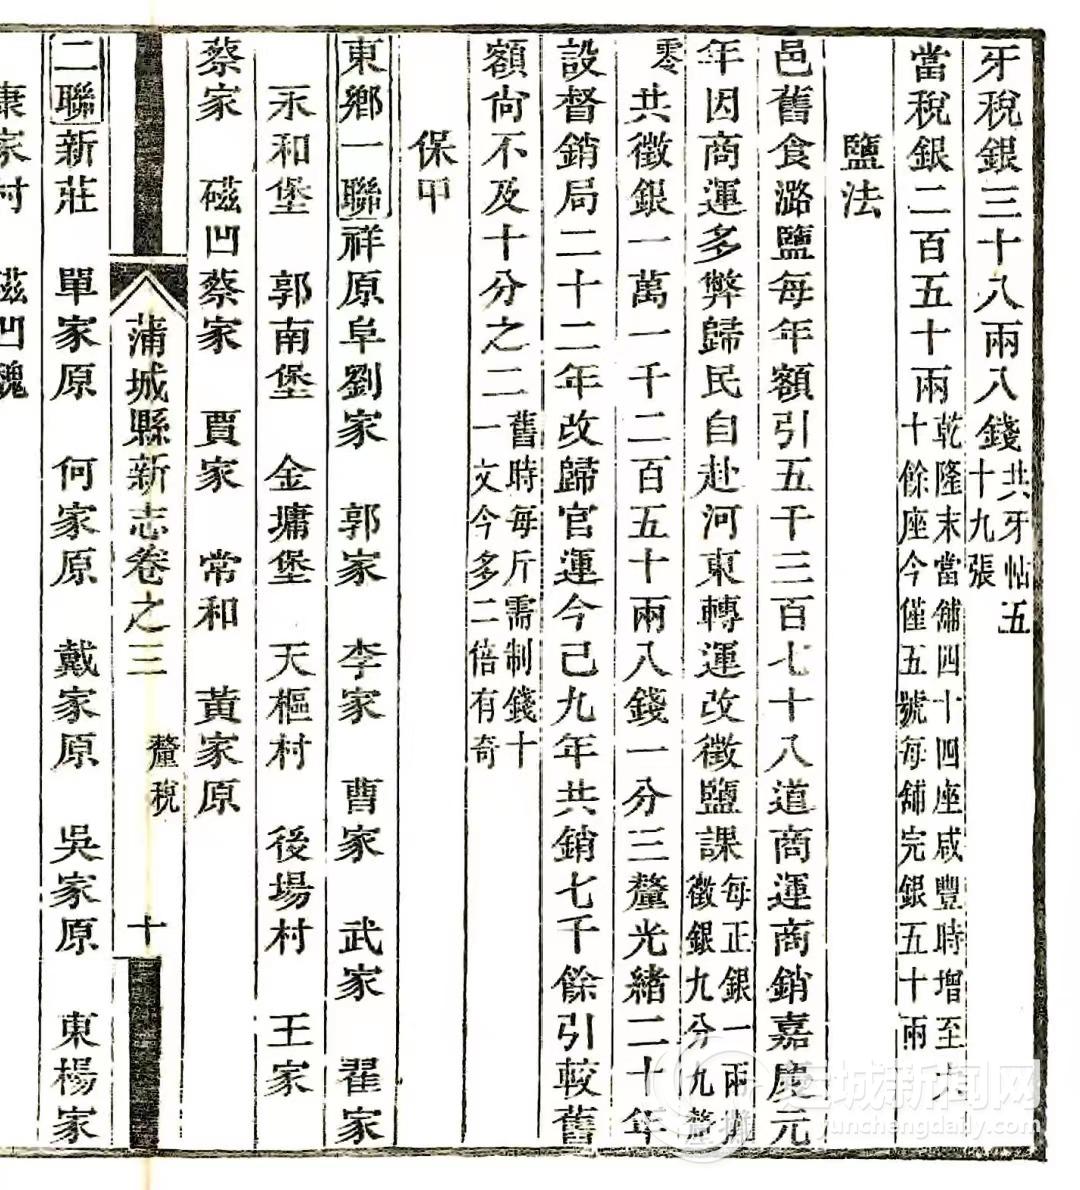 牙稅銀三十八兩八錢共牙帖五十九張
當稅銀二百五十兩乾隆末當舖四十四座咸豐時增至十餘座今僅五號每舖完銀五十兩
鹽法
邑舊食潞鹽每年額引五千三百七十八道商運商銷嘉慶元
年因商運多弊歸民自赴河東轉運改徵鹽課每正銀一兩攤徵銀九分九釐
零共徵銀一萬一千二百五十兩八錢一分三釐光緒二十年
設督銷局二十二年改歸官運今已九年共銷七千餘引較舊
額尙不及十分之二舊時每斤需制錢十一文今多二倍有奇
保甲
東鄉一聯祥原阜劉家 郭家 李家 曹家 武家 翟家
永和堡 郭南堡 金墉堡 天樞村 後場村 王家
蔡家 磁凹蔡家 賈家 常和 黃家原
蒲城縣新志卷之三 釐稅 十
二聯新莊 單家原 何家原 戴家原 吳家原 東楊家
康家村 磁凹魏
运城新闻网
yunchengdaily.com